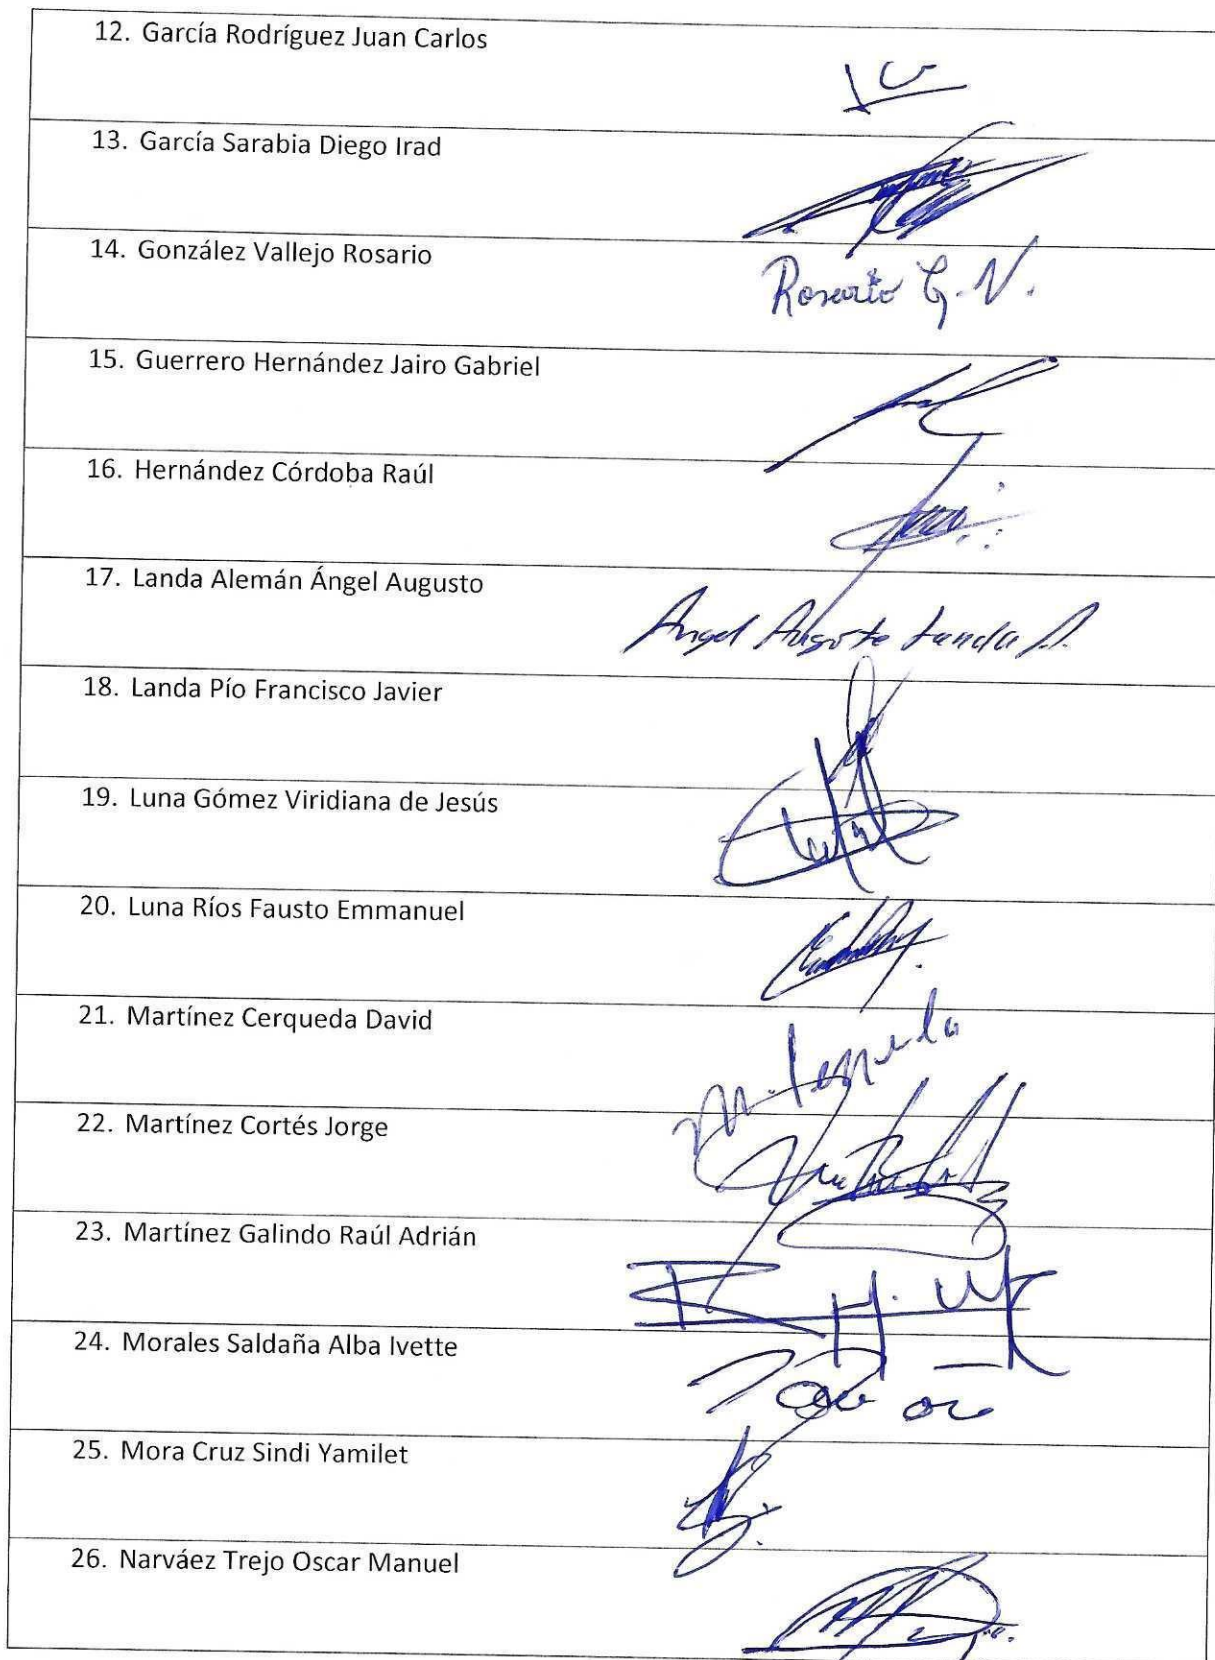 12. García Rodríguez Juan Carlos
13. García Sarabia Diego Irad
14. González Vallejo Rosario
Rosario G. V.
15. Guerrero Hernández Jairo Gabriel
16. Hernández Córdoba Raúl
17. Landa Alemán Ángel Augusto
Angel Augusto Landa A.
18. Landa Pío Francisco Javier
19. Luna Gómez Viridiana de Jesús
20. Luna Ríos Fausto Emmanuel
21. Martínez Cerqueda David
22. Martínez Cortés Jorge
23. Martínez Galindo Raúl Adrián
24. Morales Saldaña Alba Ivette
25. Mora Cruz Sindi Yamilet
26. Narváez Trejo Oscar Manuel